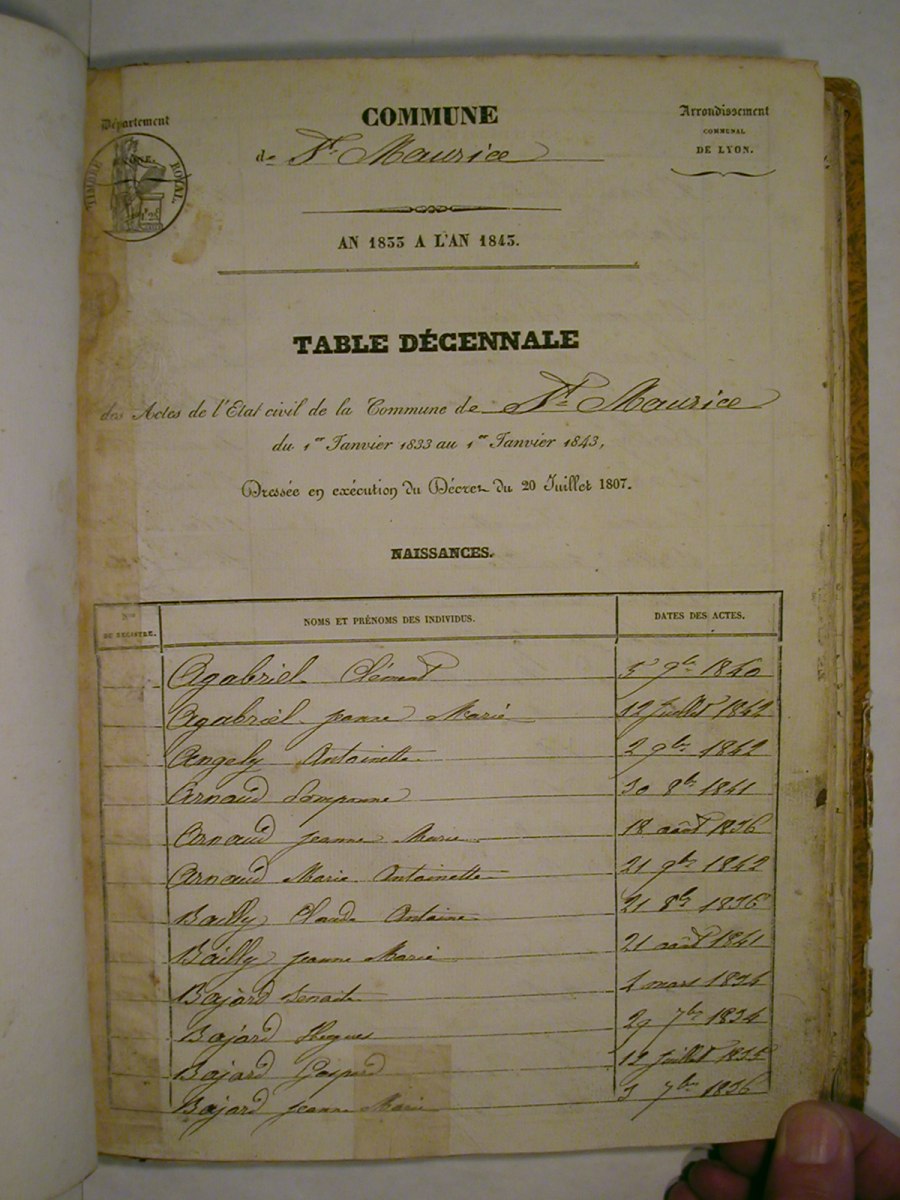 Département
COMMUNE
Arrondissement
COMMUNAL
DE LYON.
de St. Maurice
TIMBRE ROYAL
AN 1833 A L'AN 1843.
TABLE DÉCENNALE
des Actes de l'Etat civil de la Commune de St. Maurice
du 1er Janvier 1833 au 1er Janvier 1843,
Dressée en exécution du Décret du 20 Juillet 1807.
NAISSANCES.
Nos DU REGISTRE.
NOMS ET PRÉNOMS DES INDIVIDUS.
DATES DES ACTES.
Agabriel Clément 5 9bre 1840
Agabriel jeanne Marie 12 juillet 1842
Angely Antoinette 2 9bre 1842
Arnaud 30 8bre 1841
Arnaud jeanne Marie 18 août 1836
Arnaud Marie Antoinette 21 9bre 1842
Bailly Claude Antoine 21 8bre 1836
Bailly jeanne Marie 21 août 1841
Bajard Benoite 4 mars 1834
Bajard Hugues 29 7bre 1834
Bajard Gaspard 12 juillet 1835
Bajard jeanne Marie 3 7bre 1836